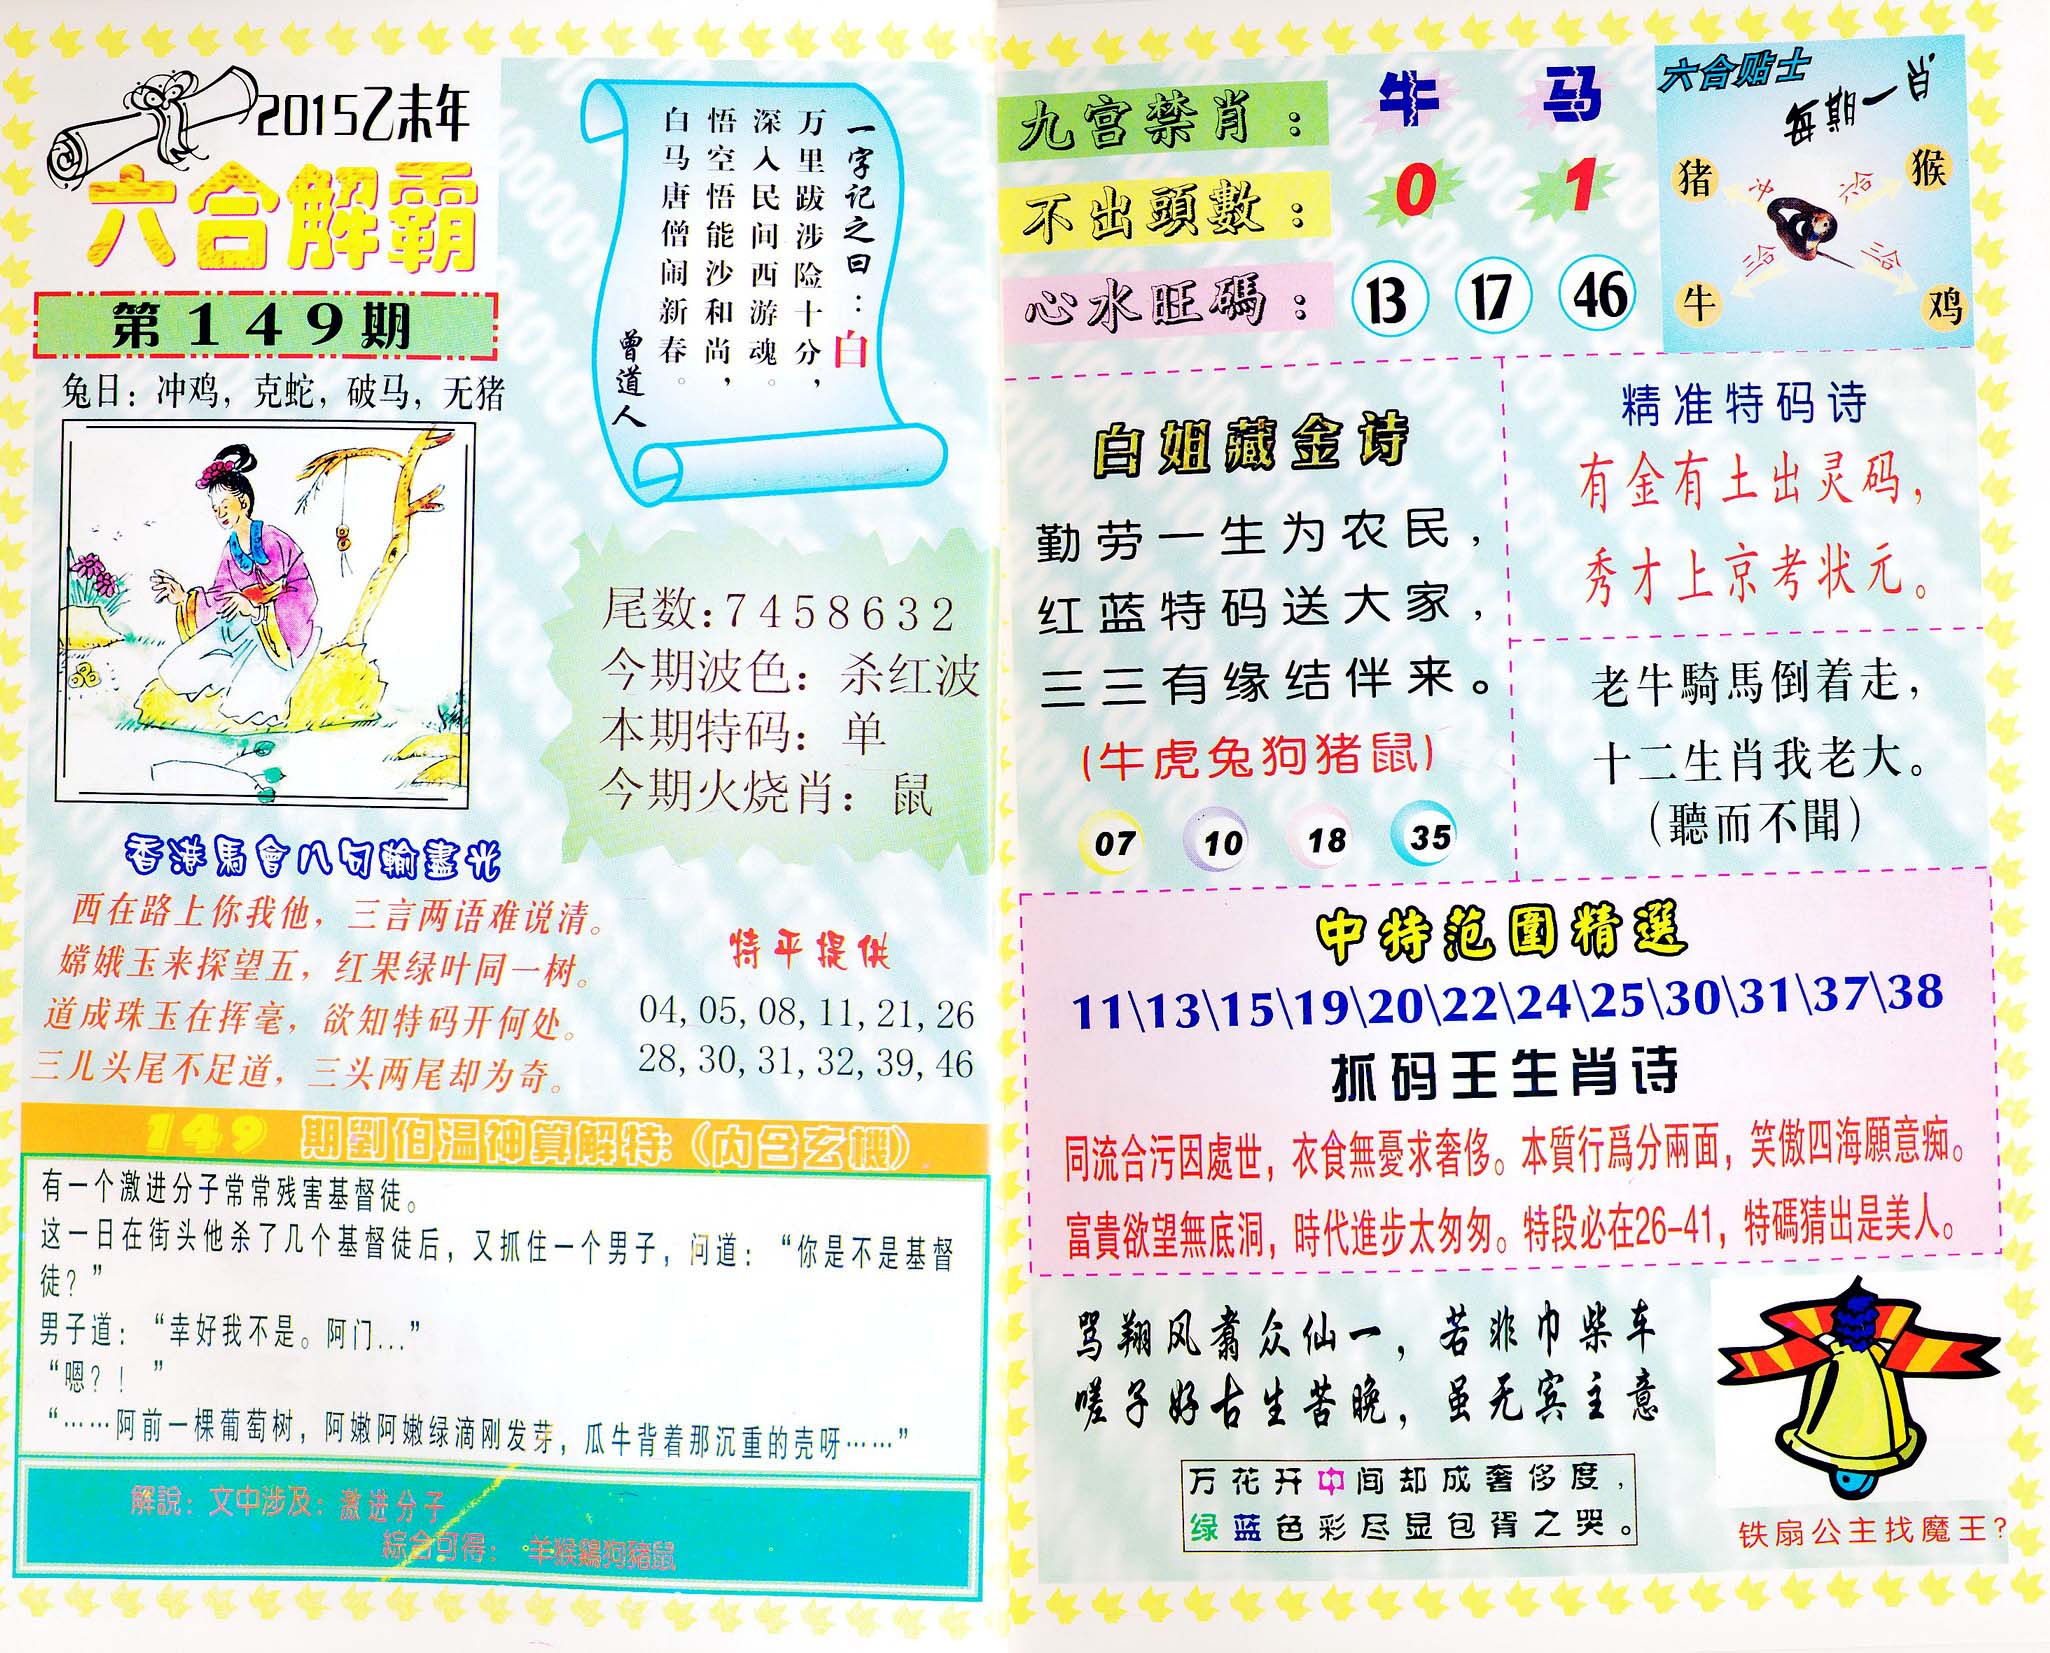 2015乙未年
六合解霸
第149期
兔日：冲鸡，克蛇，破马，无猪
一字记之曰：白
万里跋涉险十分，
深入民间西游魂。
悟空悟能沙和尚，
白马唐僧闹新春。
曾道人
尾数：7458632
今期波色：杀红波
本期特码：单
今期火烧肖：鼠
香港馬會八句輸盡光
西在路上你我他，三言两语难说清。
嫦娥玉来探望五，红果绿叶同一树。
道成珠玉在挥毫，欲知特码开何处。
三儿头尾不足道，三头两尾却为奇。
特平提供
04,05,08,11,21,26
28,30,31,32,39,46
149 期劉伯温神算解特：（内含玄機）
有一个激进分子常常残害基督徒。
这一日在街头他杀了几个基督徒后，又抓住一个男子，问道：“你是不是基督
徒？”
男子道：“幸好我不是。阿门...”
“嗯？！”
“……阿前一棵葡萄树，阿嫩阿嫩绿滴刚发芽，瓜牛背着那沉重的壳呀……”
解說：文中涉及：激进分子
綜合可得： 羊猴鷄狗豬鼠
九宫禁肖： 牛 马
不出頭數： 0 1
心水旺碼： 13 17 46
六合贴士
每期一肖
猪 冲 六合 猴
牛 三合 三合 鸡
白姐藏金诗
勤劳一生为农民，
红蓝特码送大家，
三三有缘结伴来。
(牛虎兔狗猪鼠)
07 10 18 35
精准特码诗
有金有土出灵码，
秀才上京考状元。
老牛騎馬倒着走，
十二生肖我老大。
（聽而不聞）
中特范圍精選
11\13\15\19\20\22\24\25\30\31\37\38
抓码王生肖诗
同流合污因處世，衣食無憂求奢侈。本質行爲分兩面，笑傲四海願意痴。
富貴欲望無底洞，時代進步太匆匆。特段必在26-41，特碼猜出是美人。
骂翔风翥众仙一，若非巾柴车
嗟子好古生苦晚，虽无宾主意
万花开中间却成奢侈度，
绿蓝色彩尽显包背之哭。
铁扇公主找魔王？